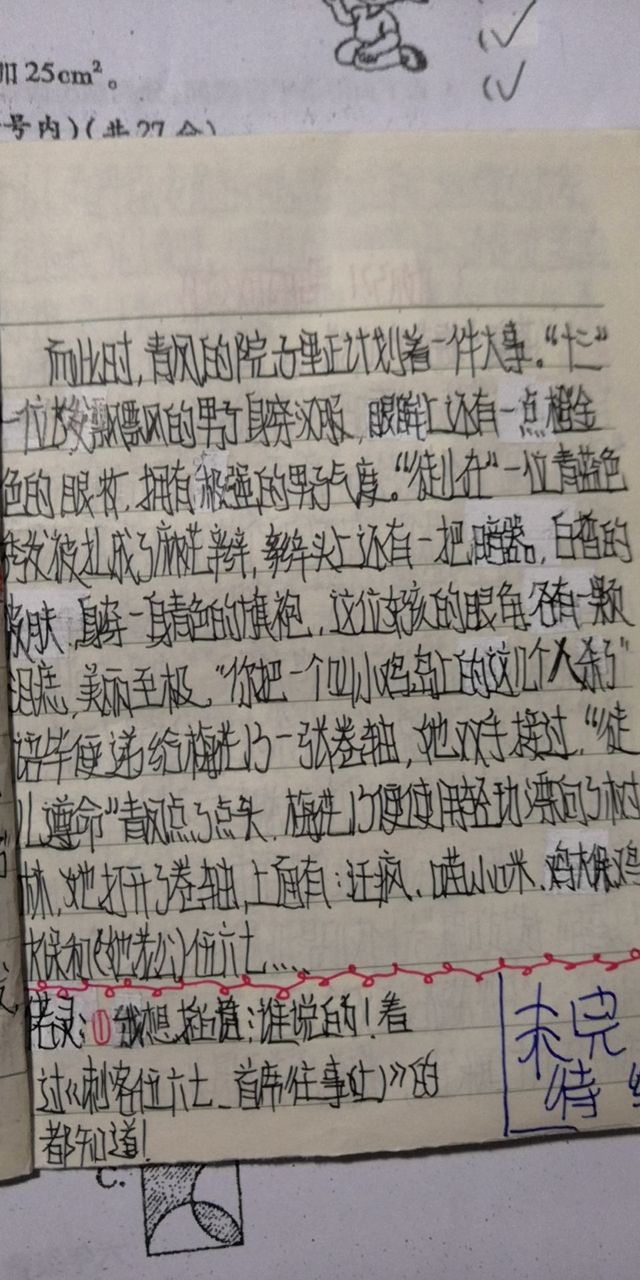 加25cm²。
号内)(共27分)
而此时,青凤的院子里正计划着一件大事。“十三”
一位长发飘飘的男子身穿汉服,眼眸上还有一点橙金
色的眼妆,拥有极强的男子气度。“徒儿在”一位青蓝色
秀发被扎成了麻花辫,辫头上还有一把暗器,白皙的
皮肤,身穿一身青色的旗袍,这位女孩的眼角各有一颗
泪痣,美丽至极。“你把一个叫小鸡岛上的这几个人杀了”
语毕便递给梅花13一张卷轴,她双手接过,“徒
儿遵命”青凤点了点头,梅花13便使用轻功漂向了树
林,她打开了卷轴,上面有:汪疯、喵小咪、鸡大保鸡
大保和(她老公)伍六七……
①我想超值:谁说的!看
过《刺客伍六七_首席往事(上)》的
都知道!
未完
待
C.